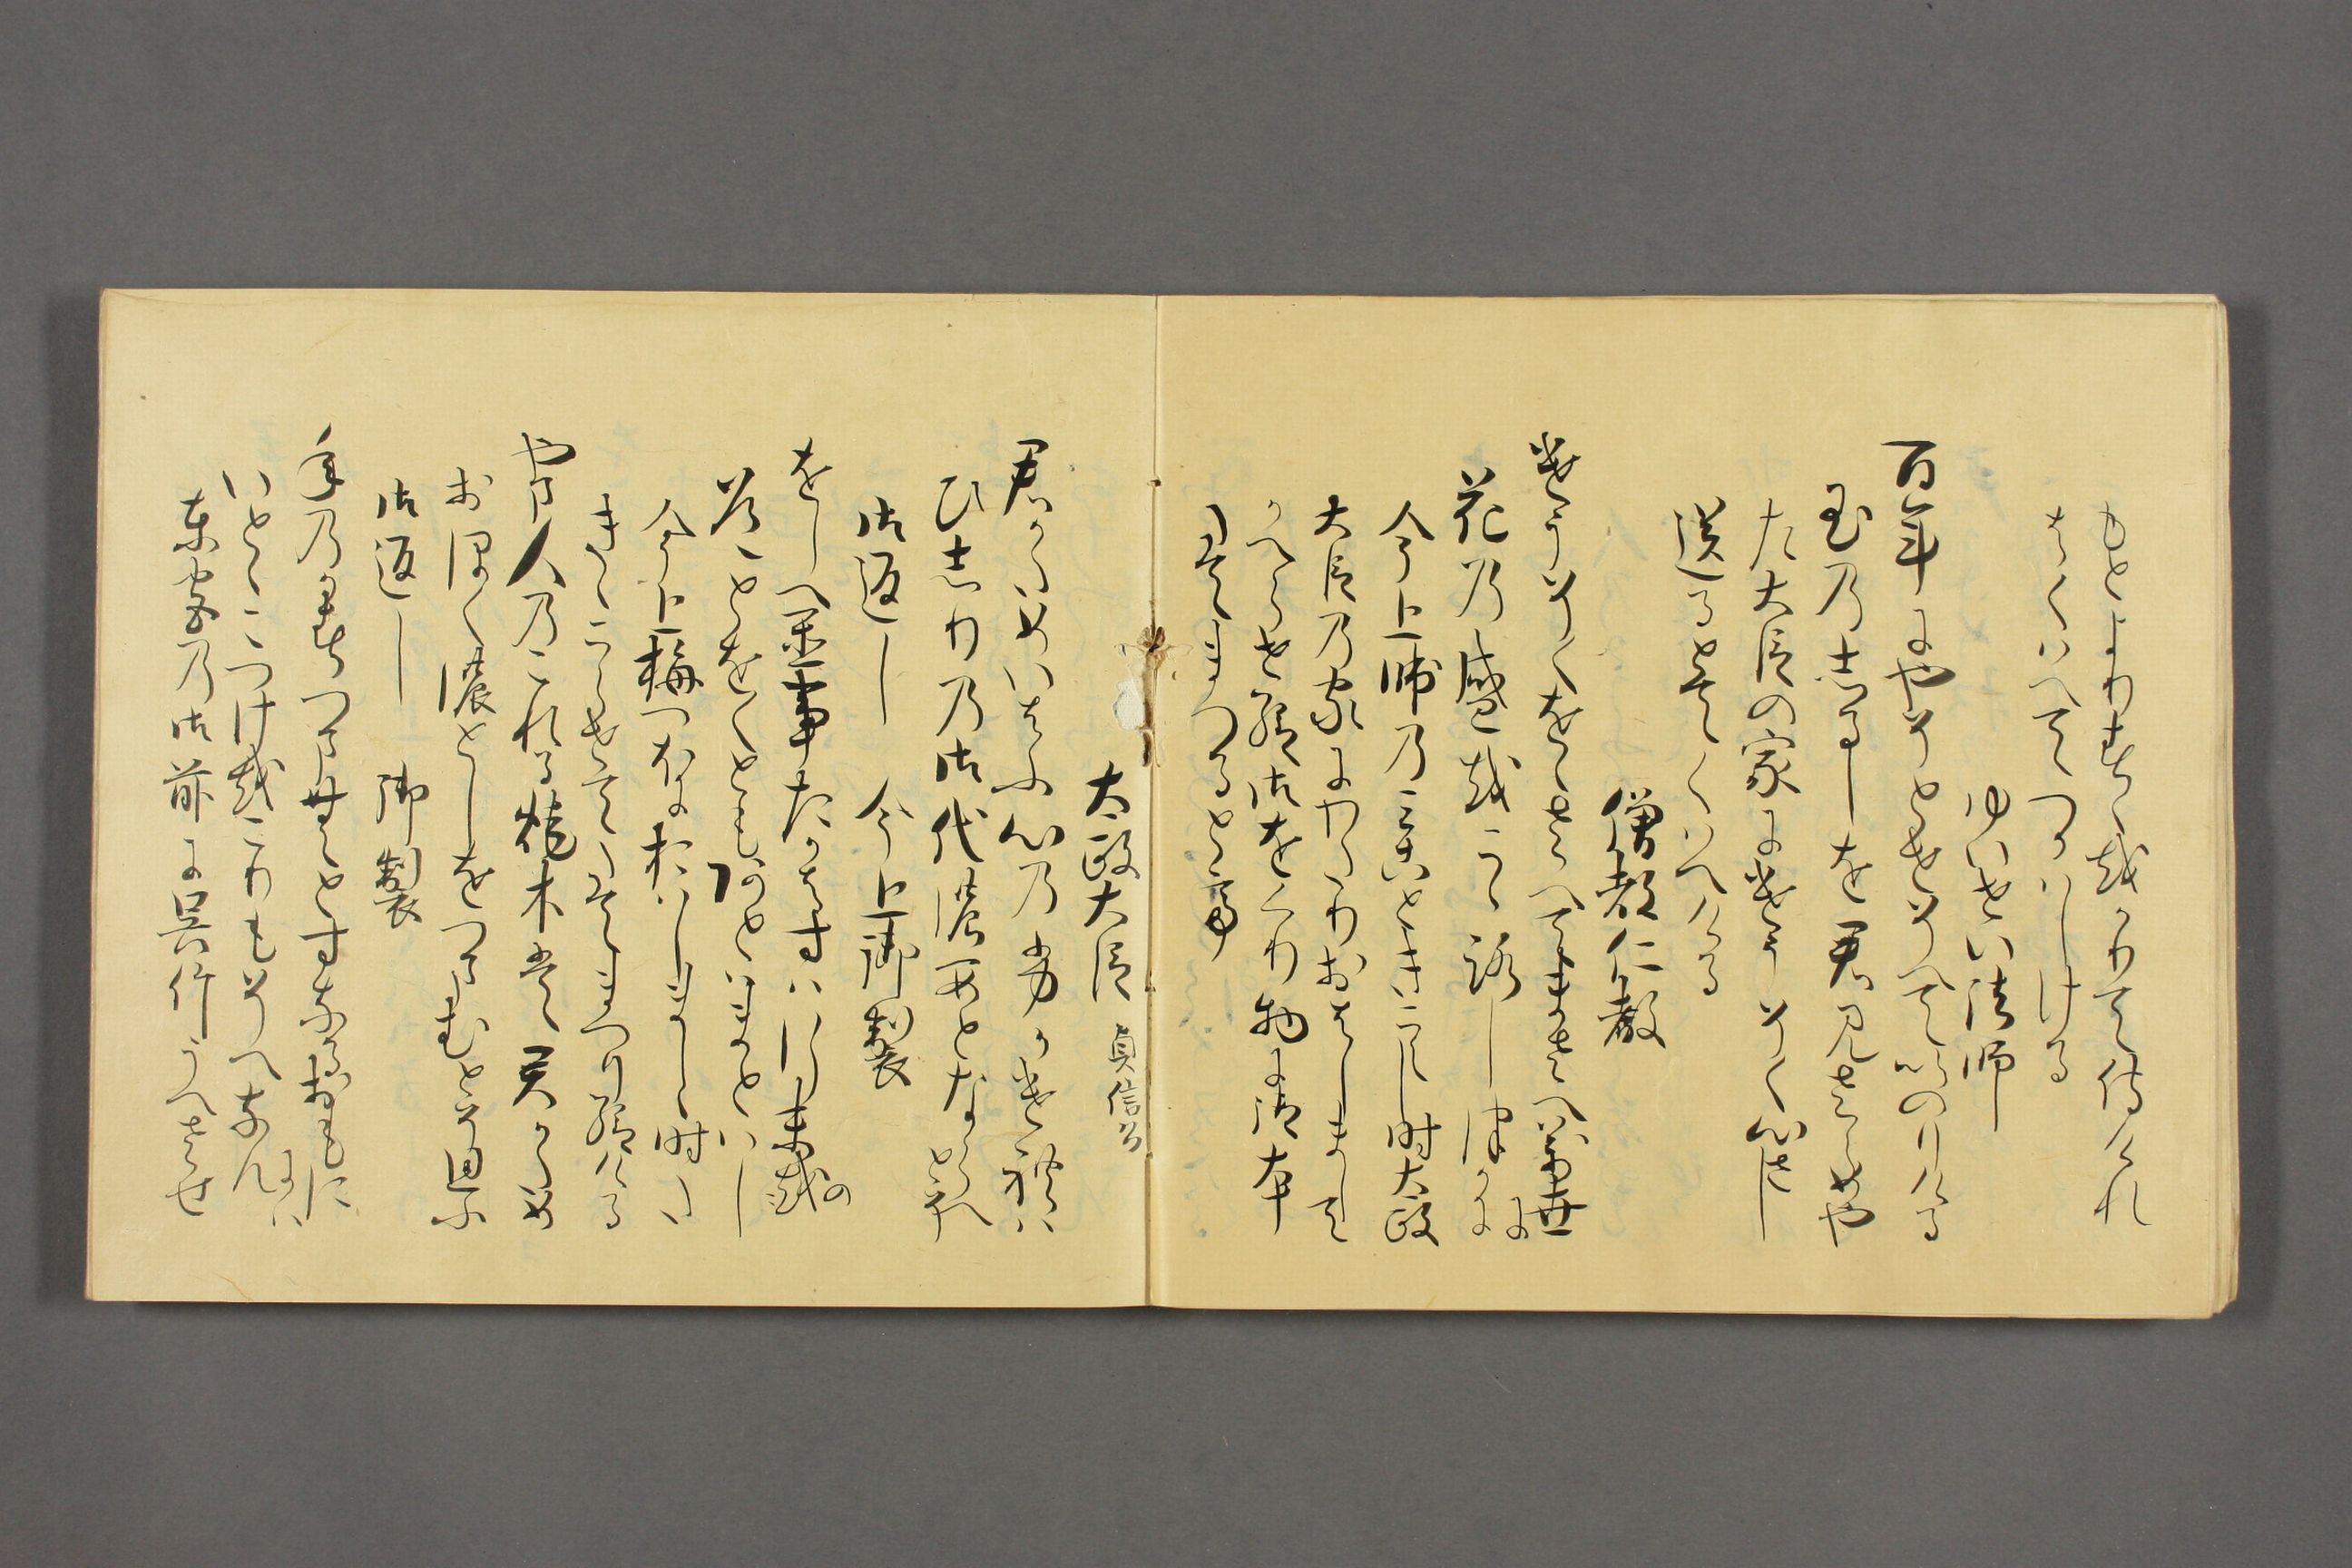 もとよりすゝをかりて侍けれ
はくはへてつかはしける
ゆいせい法師
百年にやそとせそへていのりける
玉乃志るしを君見さらめや
左大臣の家にけうそく心さし
送るとてくはへける
僧都仁教
けうそくをおさへてまさへ万世に
花乃盛を心しつかに
今上帥乃みこときこえし時太政
大臣乃家にわたりおはしまして
かへらせ給御をくり物に御本
たてまつるとて
太政大臣 貞信公
君かためいはふ心乃ふかけれは
ひしり乃御代濃あとならへとそ
御返し 今上御製
をしへをくことたかはすはゆくすゑの
道とをくともあとはまとはし
今上梅つほにおはしましゝ時
たき木こらせてたてまつり給ける
山人乃これる薪木は君かため
おほく濃としをつまむとそ思ふ
御返し 御製
年乃数つまんとすなるおもにには
いとゝこつけをこりもそへなん
東宮乃御前に呉竹うへさせ